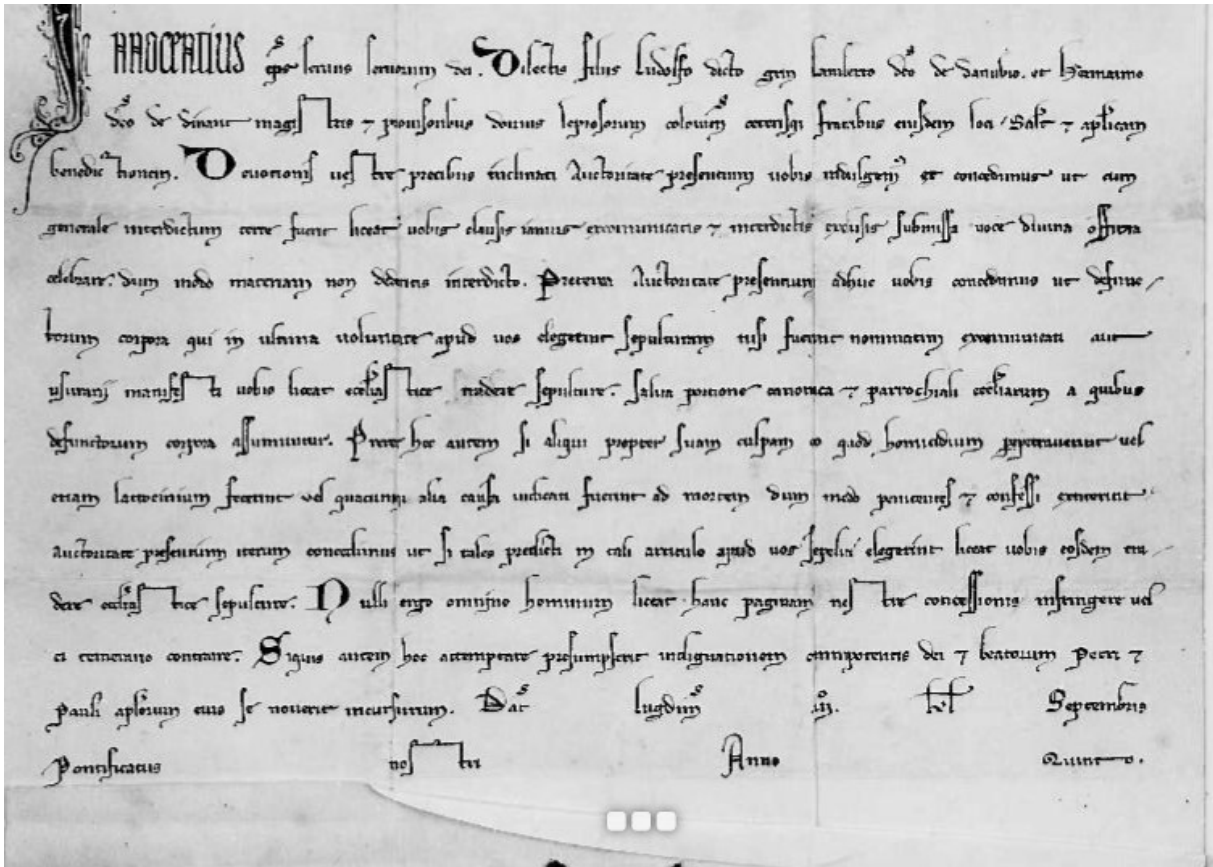 INNOCENTIUS eps seruus seruorum dei. Dilectis filiis Ludolfo dicto gryn Lamberto dco de danubio. et Hermanno
dco de dinant magistris ⁊ prouisoribus domus leprosorum colonien ceterisqz fratribus eiusdem loci Salt ⁊ aplicam
benedictionem. Deuotionis uestre precibus inclinati Auctoritate presentium uobis indulgem et concedimus ut cum
generale interdictum terre fuerit liceat uobis clausis ianuis excommunicatis ⁊ interdictis exclusis submissa uoce diuina officia
celebrare. dum modo materiam non dederitis interdicto. Preterea Auctoritate presentium adhuc uobis concedimus ut defunc
torum corpora qui in ultima uoluntate apud uos elegerint sepulturam nisi fuerint nominatim excommunicati aut
usurarii manifesti uobis liceat ecclastice tradere sepulture. Salua portione canonica ⁊ parrochiali eccliarum a quibus
defunctorum corpora assumuntur. Preter hoc autem si aliqui propter suam culpam eo quod homicidium perpetrauerint uel
etiam latrocinium fecerint uel quacunqz alia causa iudicati fuerint ad mortem dum modo penitentes ⁊ confessi extiterint
Auctoritate presentium iterum concedimus ut si tales predicti in tali articulo apud uos sepeliri elegerint liceat uobis eosdem tra
dere ecclastice sepulture. Nulli ergo omnino hominum liceat hanc paginam nostre concessionis infringere uel
ei temerario contraire. Siquis autem hoc attemptare presumpserit indignationem omnipotentis dei ⁊ beatorum Petri ⁊
Pauli aplorum eius se nouerit incursurum. Dat Lugdun iij. kl Septembris
Pontificatus nostri Anno Quinto.